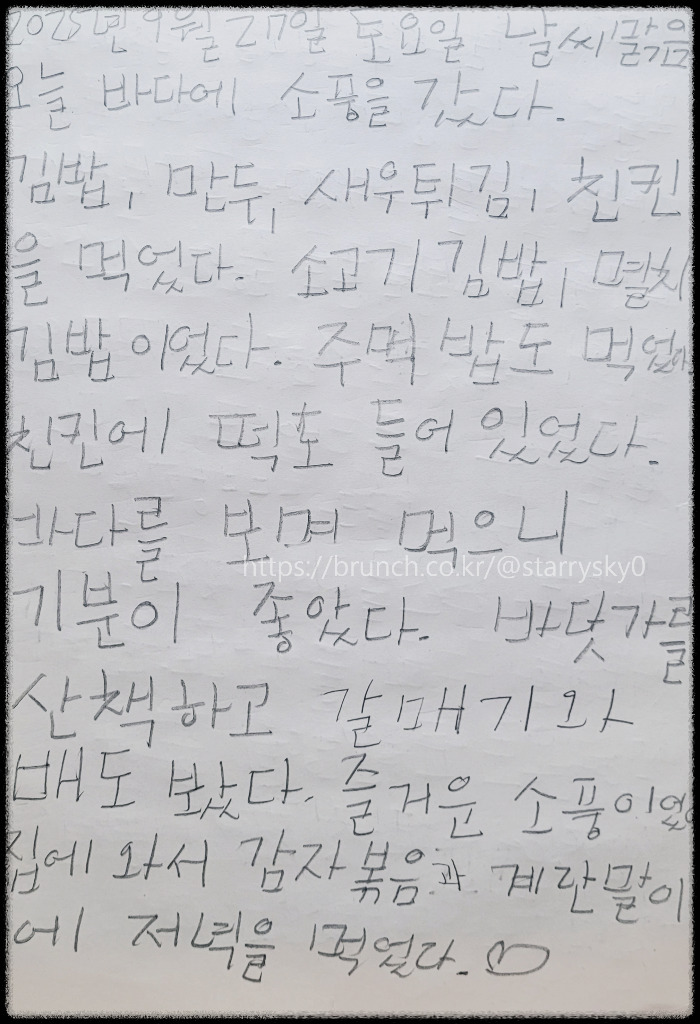 2025년 9월 27일 토요일 날씨맑음
오늘 바다에 소풍을 갔다.
김밥, 만두, 새우튀김, 친킨
을 먹었다. 소고기김밥, 멸치
김밥이었다. 주먹밥도 먹었다.
친킨에 떡도 들어있었다.
바다를 보며 먹으니
https://brunch.co.kr/@starrysky0
기분이 좋았다. 바닷가를
산책하고 갈매기와
배도 봤다. 즐거운 소풍이었
집에 와서 감자볶음과 계란말이
에 저녁을 먹었다.♡